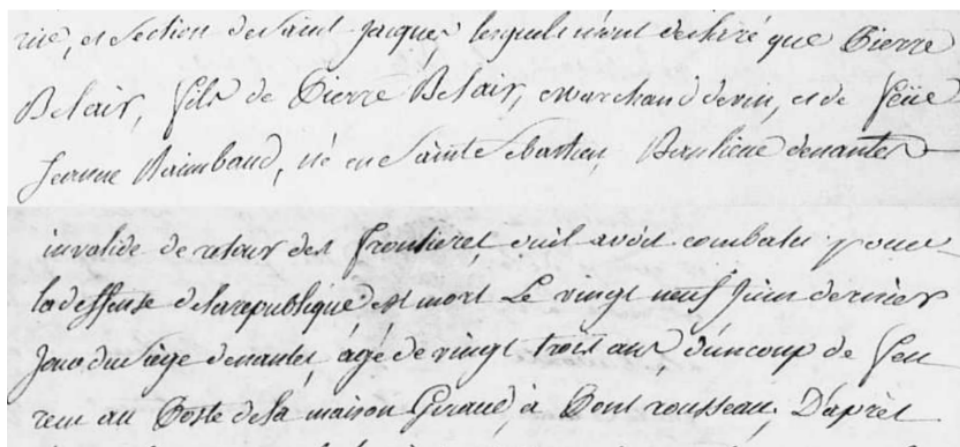 rue, et section de Saint Jacques lesquels m'ont déclaré que Pierre
Belair, fils de Pierre Belair, marchand de vin, et de feüe
Jeanne Raimbaud, né en Saint Sebastien, Banlieue de nantes
invalide de retour des frontieres, ou il avoit combatu pour
la deffense de la republique est mort Le vingt neuf Juin dernier
Jour du siège de nantes, agé de vingt trois ans d'un coup de feu
recu au Poste de la maison Giraud, à Pont rousseau, D'après